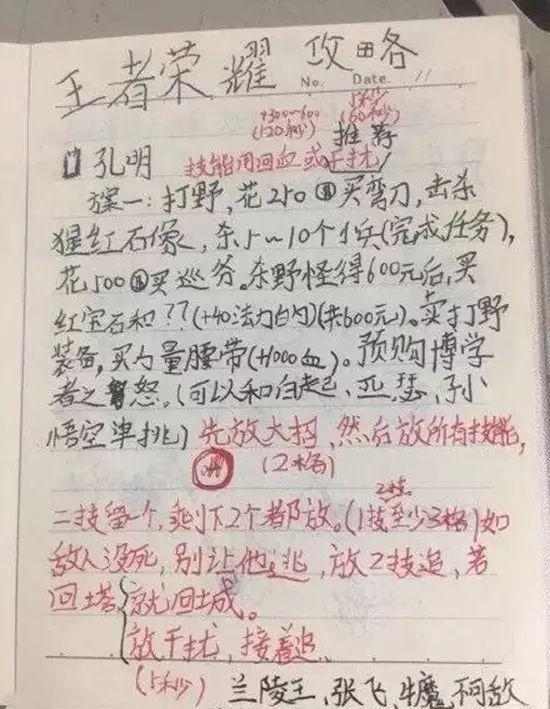 王者荣耀 攻略
No. Date. 11
+300~600 5秒
(120秒) (60秒)
推荐
孔明 技能用回血或干扰
方案一:打野,花250买弯刀,击杀
猩红石像,杀5~10个小兵(完成任务),
花500买巡务。杀野怪得600元后,买
红宝石和??(+40法力的)(共600元)。卖打野
装备,买力量腰带(+1000血)。预购博学
者之怒。(可以和白起、亚瑟、孙
悟空单挑)先放大招,然后放所有技能,
(2格)
2技
二技留一个,剩下2个都放。(1技至少3格)如
敌人没死,别让他逃,放2技追,若
回塔{就回城。
放干扰,接着追。
(5秒) 兰陵王,张飞,牛魔,不可敌